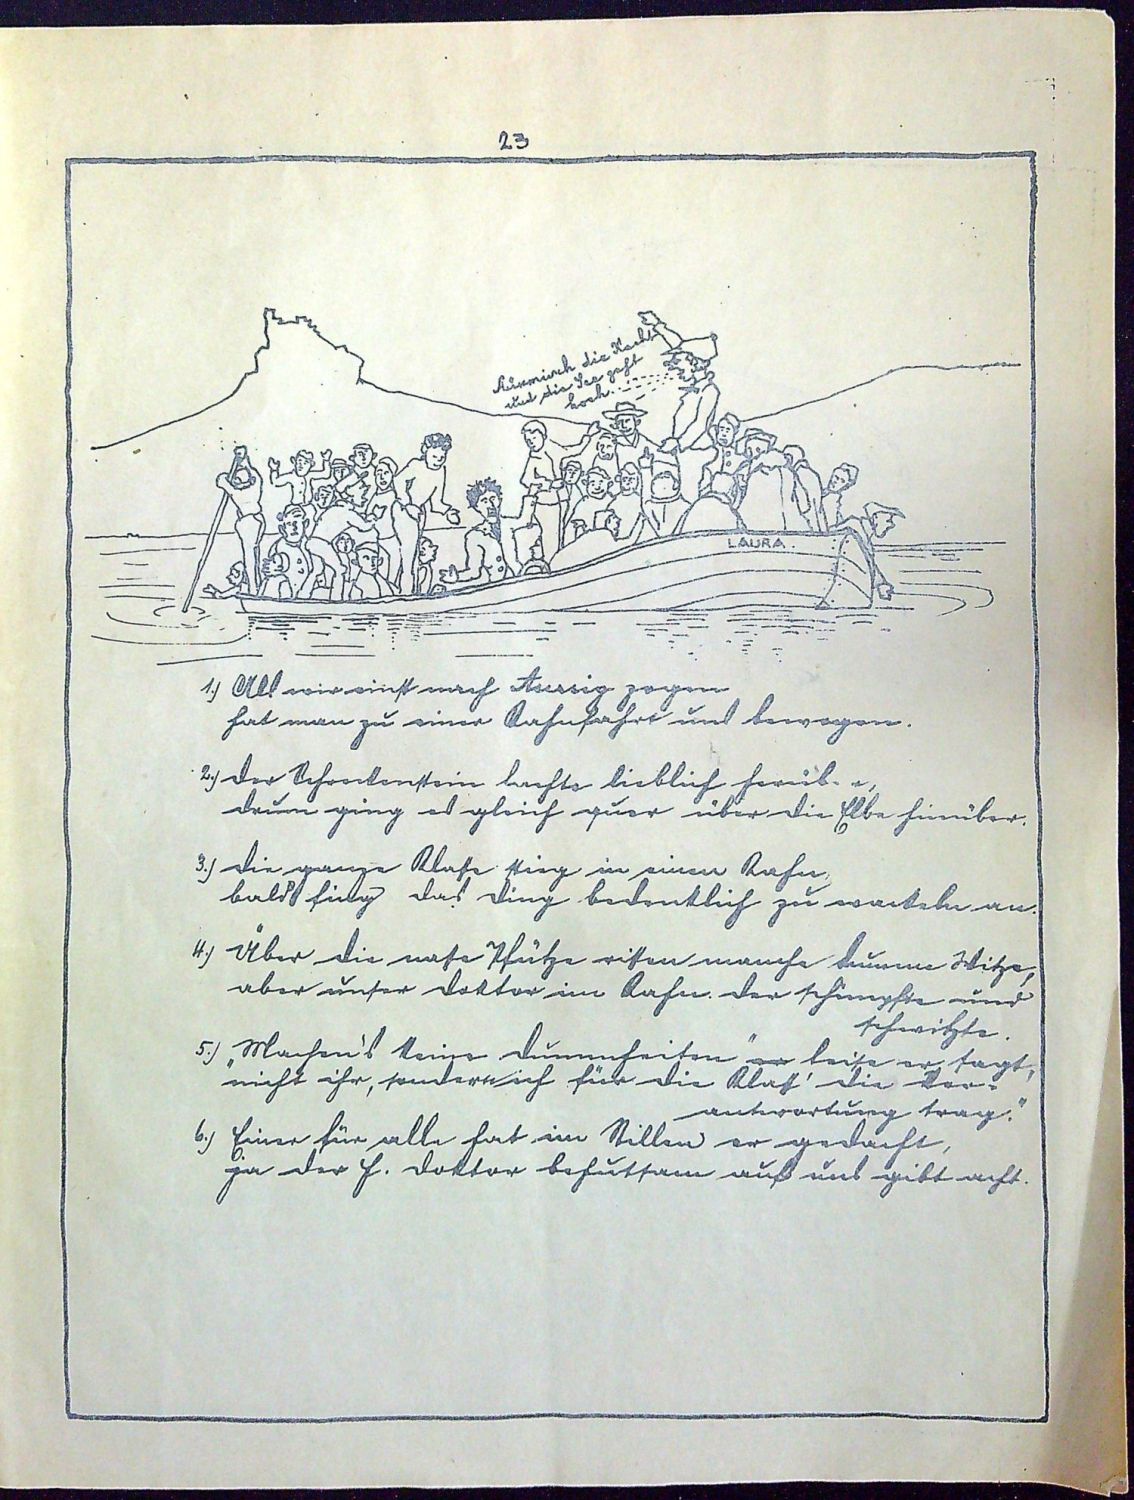 23
Stürmisch die Nacht
und die See geht
hoch
LAURA.
1.) Als wir einst nach Aussig zogen
hat man zu einer Kahnfahrt uns bewogen.
2.) Der Schreckenstein lachte lieblich herüb
drum ging es gleich quer über die Elbe hinüber.
3.) Die ganze Klasse stieg in einen Kahn,
bald fing das Ding bedenklich zu wackeln an.
4.) Über die nasse Pfütze rissen manche dumme Witze,
aber unser Doktor im Kahn. der schimpfte und
schwitzte.
5.) „Machen's keine Dummheiten" leise er sagt,
"nicht ihr, sondern ich für die Klass' die Ver-
antwortung trag."
6.) Einer für alle hat im Stillen er gedacht,
ja der H. Doktor behutsam auf uns gibt acht.